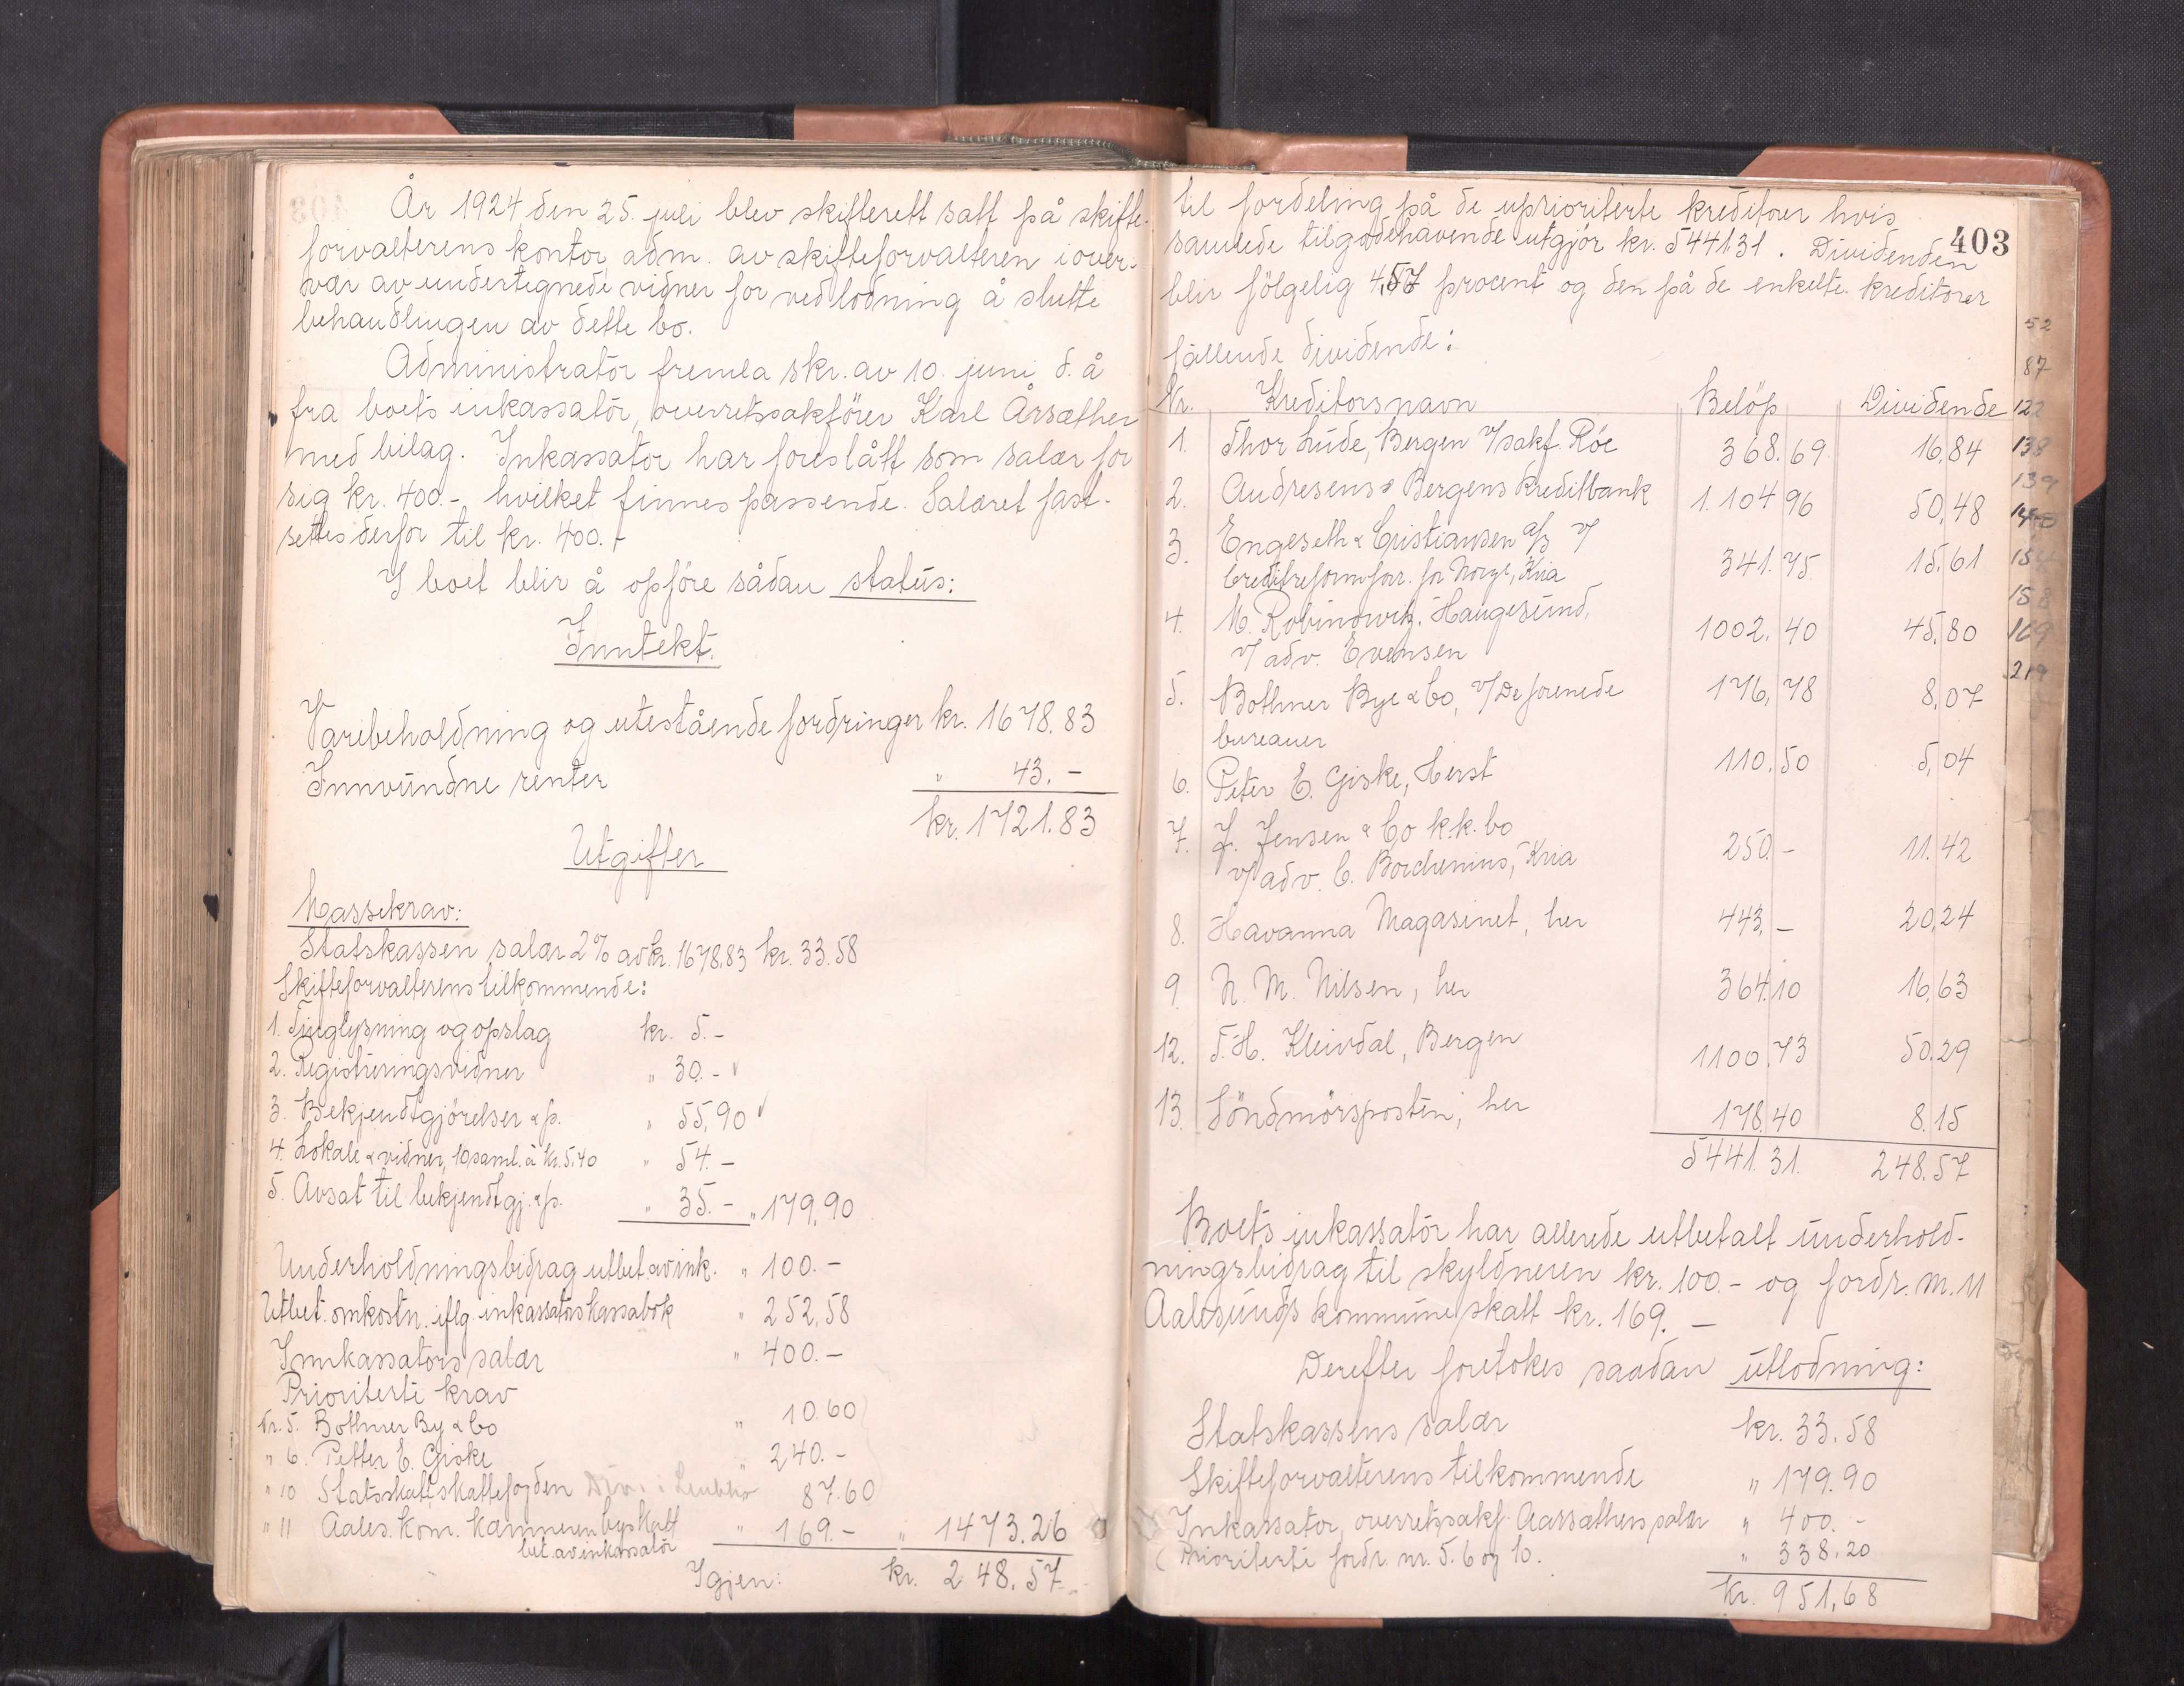 År 1924 den 25. juli blev skifterett satt på skifte-
forvalterens kontor adm. av skifteforvalteren i over-
vær av undertegnede vidner for ved lodning å slutte
behandlingen av dette bo.
Administrator fremla skr. av 10. juni d. å
fra boets inkassator, overretssakförer Karl Årsæther
med bilag. Inkassator har foreslått som salær for
sig kr. 400.- hvilket finnes passende. Salæret fast-
settes derfor til kr. 400.-
I boet blir å opföre sådan status:
Inntekt.
Varebeholdning og utestående fordringer kr. 1678.83
Innvundne renter " 43.-
kr. 1721.83
Utgifter
Massekrav:
Statskassen salær 2% av kr. 1678.83 kr. 33.58
Skifteforvalterens tilkommende:
1. Tinglysning og opslag kr. 5.-
2. Registreringsvidner " 30.-
3. Bekjendtgjörelser &p. " 55,90
4. Lokale & vidner, 10 saml. à kr. 5.40 " 54.-
5. Avsat til bekjendtgj. &p. " 35.- " 179.90
Underholdningsbidrag utbet. av ink. " 100.-
Utbet. omkostn. iflg. inkassators kassabok " 252,58
Innkassators salær " 400.-
Prioriterte krav
Nr. 5. Bothner By & Co " 10.60
" 6. Petter E. Giske " 240.-
" 10 Statsskatt skattefogden 87.60
" 11 Aales. kom. kæmneren byskatt " 169.- " 1473.26
bet. av inkassator
Igjen: kr. 248.57
403
til fordeling på de uprioriterte kreditorer hvis
samlede tilgodehavende utgjör kr. 544131. Dividenden
blir fölgelig 4,57 procent og den på de enkelte kreditorer
fallende dividende:
Nr. Kreditorsnavn Belöp Dividende
1. Thor Lude, Bergen v/sakf. Röe 368.69 16,84
2. Andresens & Bergens Kreditbank 1.104 96 50,48
3. Engeseth & Cristiansen a/s v/
Creditreformforr. for Norge, Kria 341.75 15.61
4. M. Robinowitz. Haugesund,
v/ adv. Evensen 1002.40 45,80
5. Bothner Bye & Co, v/ De forenede
bureauer 176,78 8,07
6. Peter E. Giske, Herst 110.50 5,04
7. J. Jensen & Co k.k. bo
v/ adv. C. Borchenius, Kria 250.- 11.42
8. Havanna Magasinet, her 443,- 20,24
9. N. M. Nilsen, her 364.10 16,63
12. T. H. Kleivdal, Bergen 1100.73 50.29
13. Söndmörsposten, her 178.40 8.15
5441.31. 248.57
Boets inkassator har allerede utbetalt underhold-
ningsbidrag til skyldneren kr. 100.- og fordr. nr. 11
Aalesunds kommune skatt kr. 169.-
Derefter foretokes saadan utlodning:
Statskassens salær kr. 33.58
Skifteforvalterens tilkommende " 179.90
Inkassator, overretssakf. Aarsæthers salær " 400.-
Prioriterte fordr. nr. 5. 6 og 10. " 338.20
Kr. 951,68
52
87
122
138
139
154
158
169
219